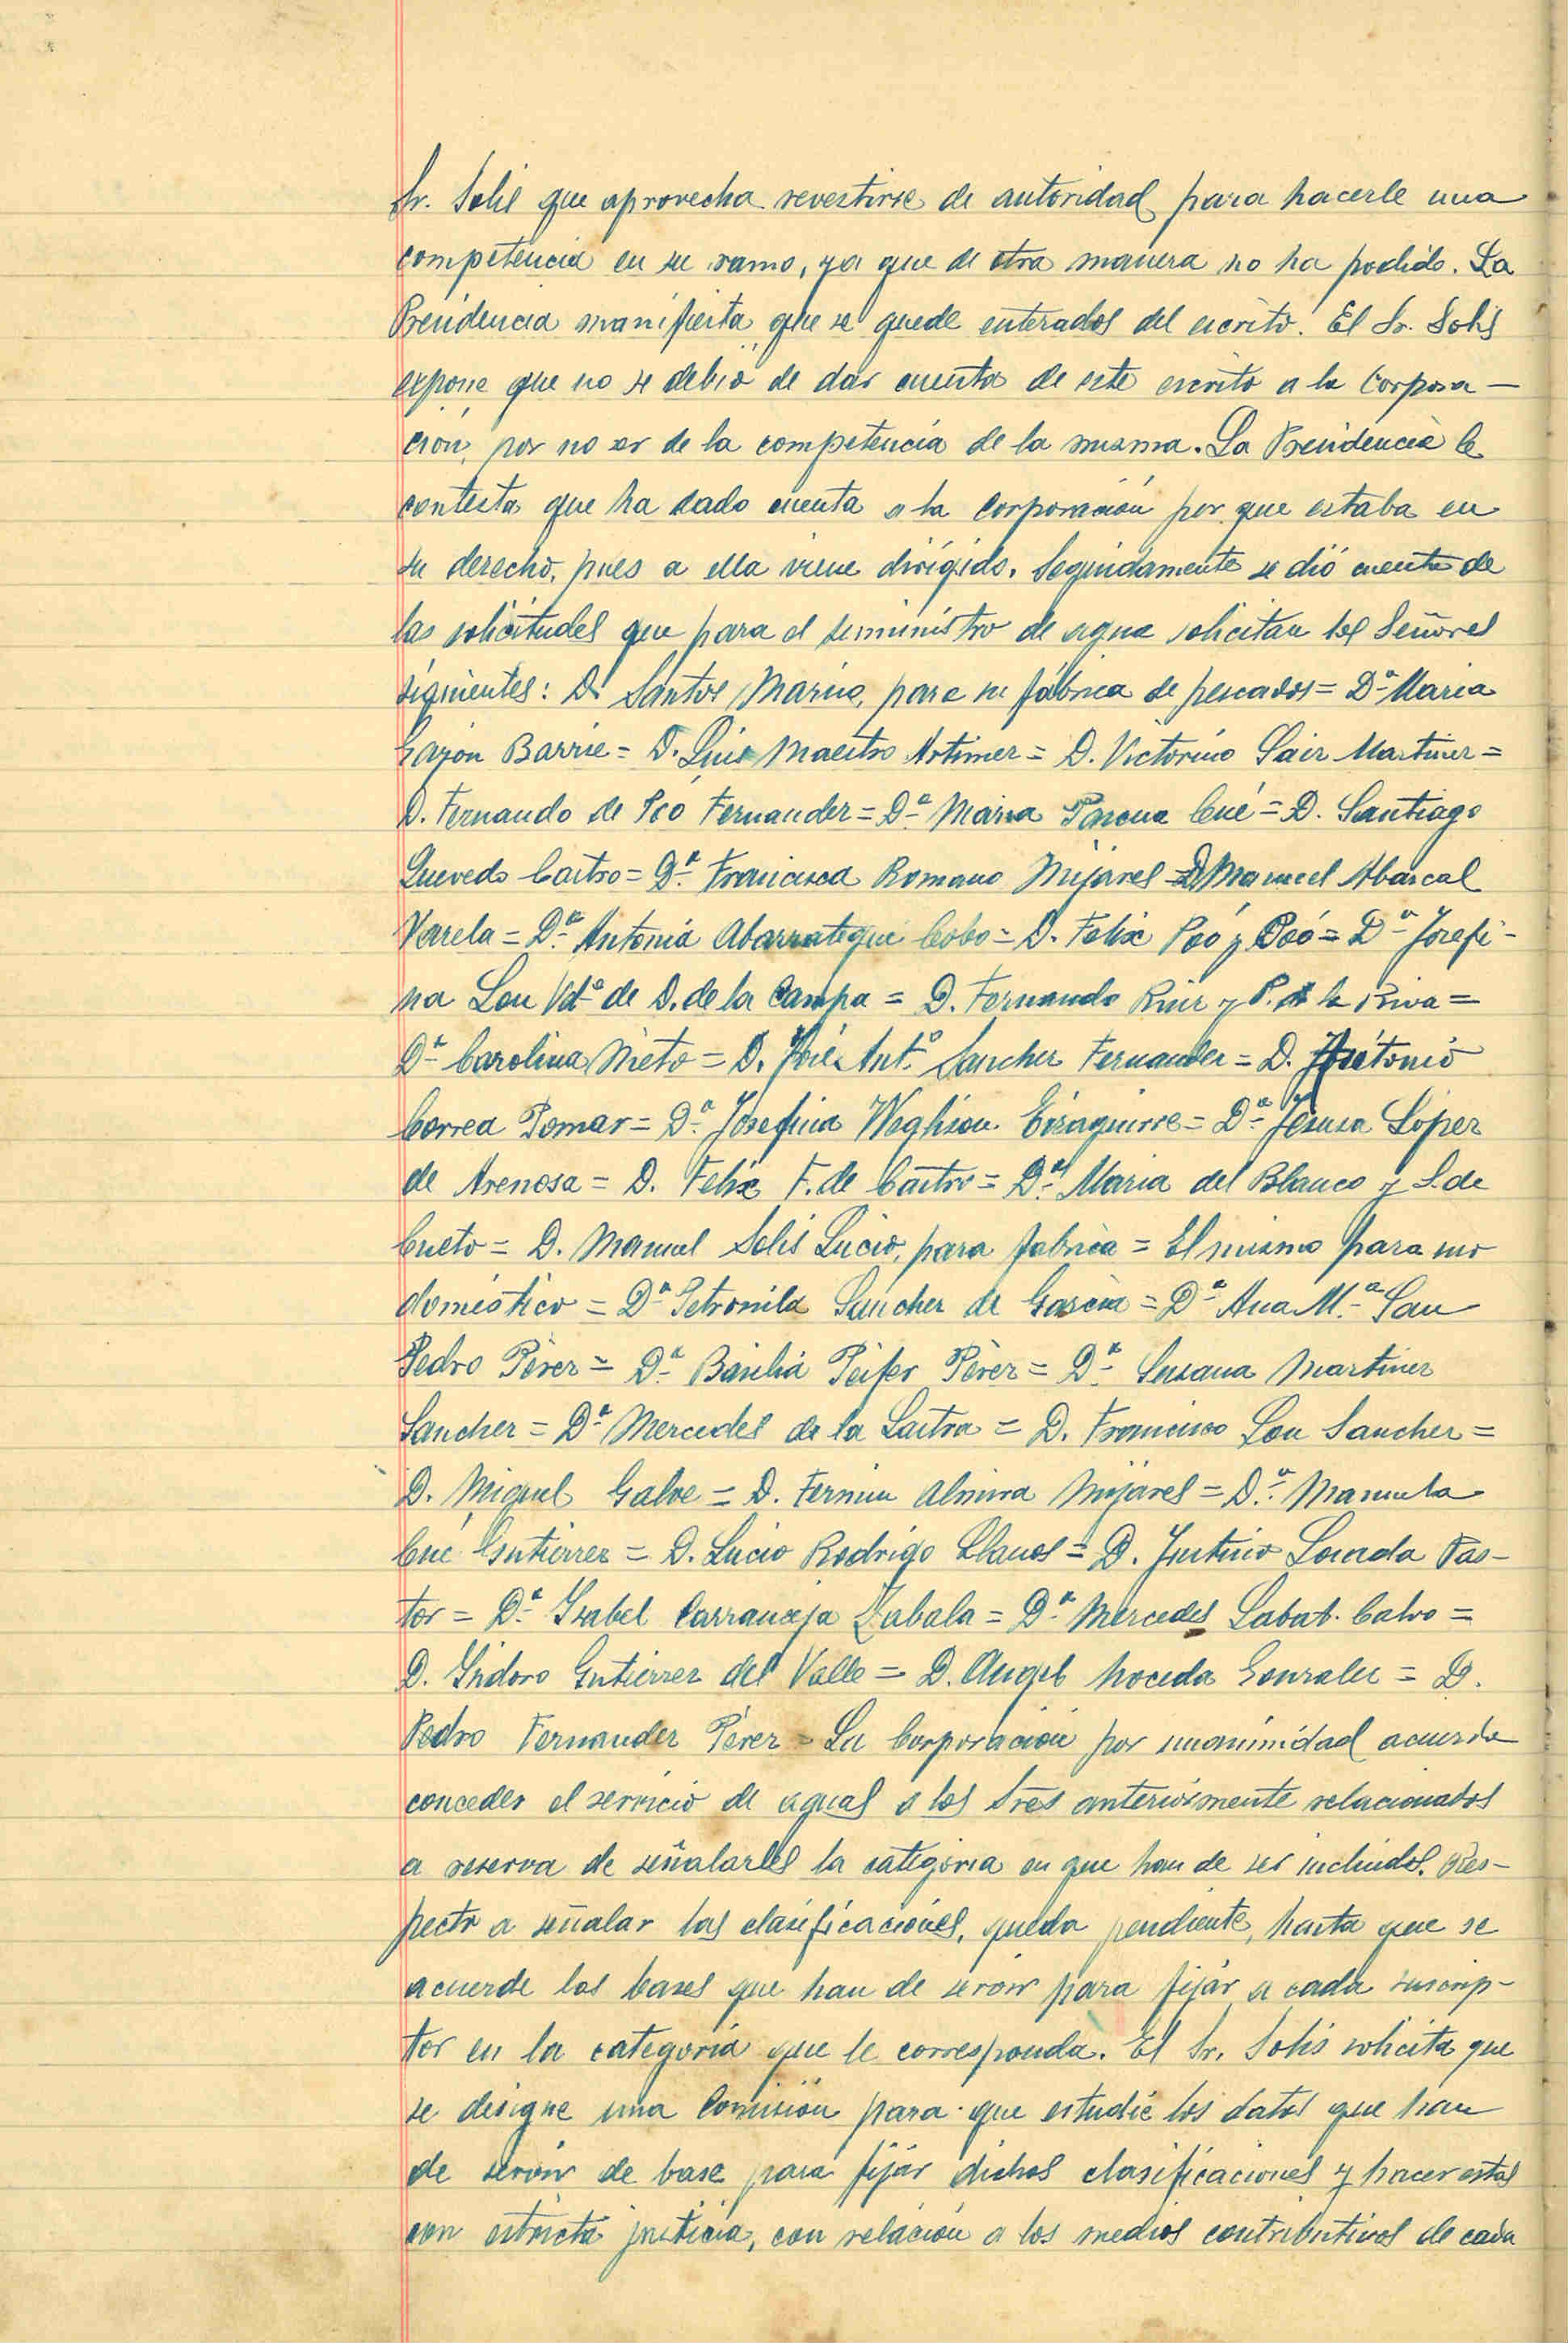 Sr. Solis que aprovecha revestirse de autoridad para hacerle una
competencia en su ramo, ya que de otra manera no ha podido. La
Presidencia manifiesta que se quede enterados del escrito. El Sr. Solis
expone que no se debió de dar cuenta de este escrito a la Corpora-
ción, por no ser de la competencia de la misma. La Presidencia le
contesta que ha dado cuenta a la Corporación por que estaba en
su derecho, pues a ella viene dirigido. Seguidamente se dió cuenta de
las solicitudes que para el suministro de agua solicitan los Señores
siguientes: D. Santos Marino, para su fábrica de pescados = Dª Maria
Gayon Barrie = D. Luis Maestro Artimez = D. Victorino Sainz Martinez =
D. Fernando de Poó Fernandez = Dª Maria Pascua Cué = D. Santiago
Quevedo Castro = Dª Francisca Romano Mijares = D. Manuel Abascal
Varela = Dª Antonia Abarrategui Cobo = D. Felix Poó y Poó = Dª Josefi-
na Lon Vdª de D. de la Campa = D. Fernando Ruiz y P. de la Riva =
Dª Carolina Nieto = D. José Antº Sanchez Fernandez = D.
Correa Pomar = Dª Josefina Weghison Eizaguirre = Dª Jesusa Lopez
de Arenosa = D. Felix F. de Castro = Dª Maria del Blanco y S. de
Cueto = D. Manuel Solis Lucio, para fabrica = El mismo para uso
doméstico = Dª Petronila Sanchez de Garcia = Dª Ana M.ª San
Pedro Pérez = Dª Basilia Peifer Pérez = Dª Susana Martinez
Sanchez = Dª Mercedes de la Lastra = D. Francisco Lon Sanchez =
D. Miguel Galve = D. Fermin Alvira Mijares = Dª Manuela
Cué Gutierrez = D. Lucio Rodrigo Llanos = D. Justino Losada Pas-
tor = Dª Isabel Carranceja Zabala = Dª Mercedes Sabat Calvo =
D. Isidoro Gutierrez del Valle = D. Angel Noceda Gonzalez = D.
Pedro Fernandez Pérez = La Corporación por unanimidad acuerda
conceder el servicio de aguas a los Sres anteriormente relacionados
a reserva de señalarles la categoria en que han de ser incluidos. Res-
pecto a señalar las clasificaciones, queda pendiente, hasta que se
acuerde las bases que han de servir para fijar a cada suscrip-
tor en la categoria que le corresponda. El Sr. Solis solicita que
se designe una Comisión para que estudie los datos que han
de servir de base para fijar dichas clasificaciones y hacer estas
con estricta justicia, con relación a los medios contributivos de cada